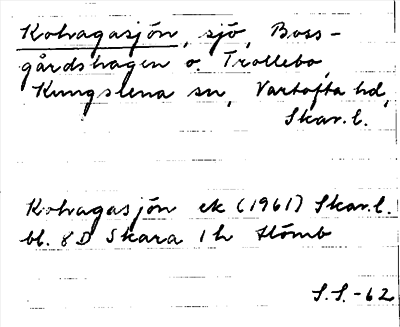 Kohagasjön, sjö, Boss-
gårdshagen o. Trollebo,
Kungslena sn, Vartofta hd,
Skar. l.
Kohagasjön ek (1961) Skar. l.
bl. 8D Skara 1h Stömb
S.S. -62